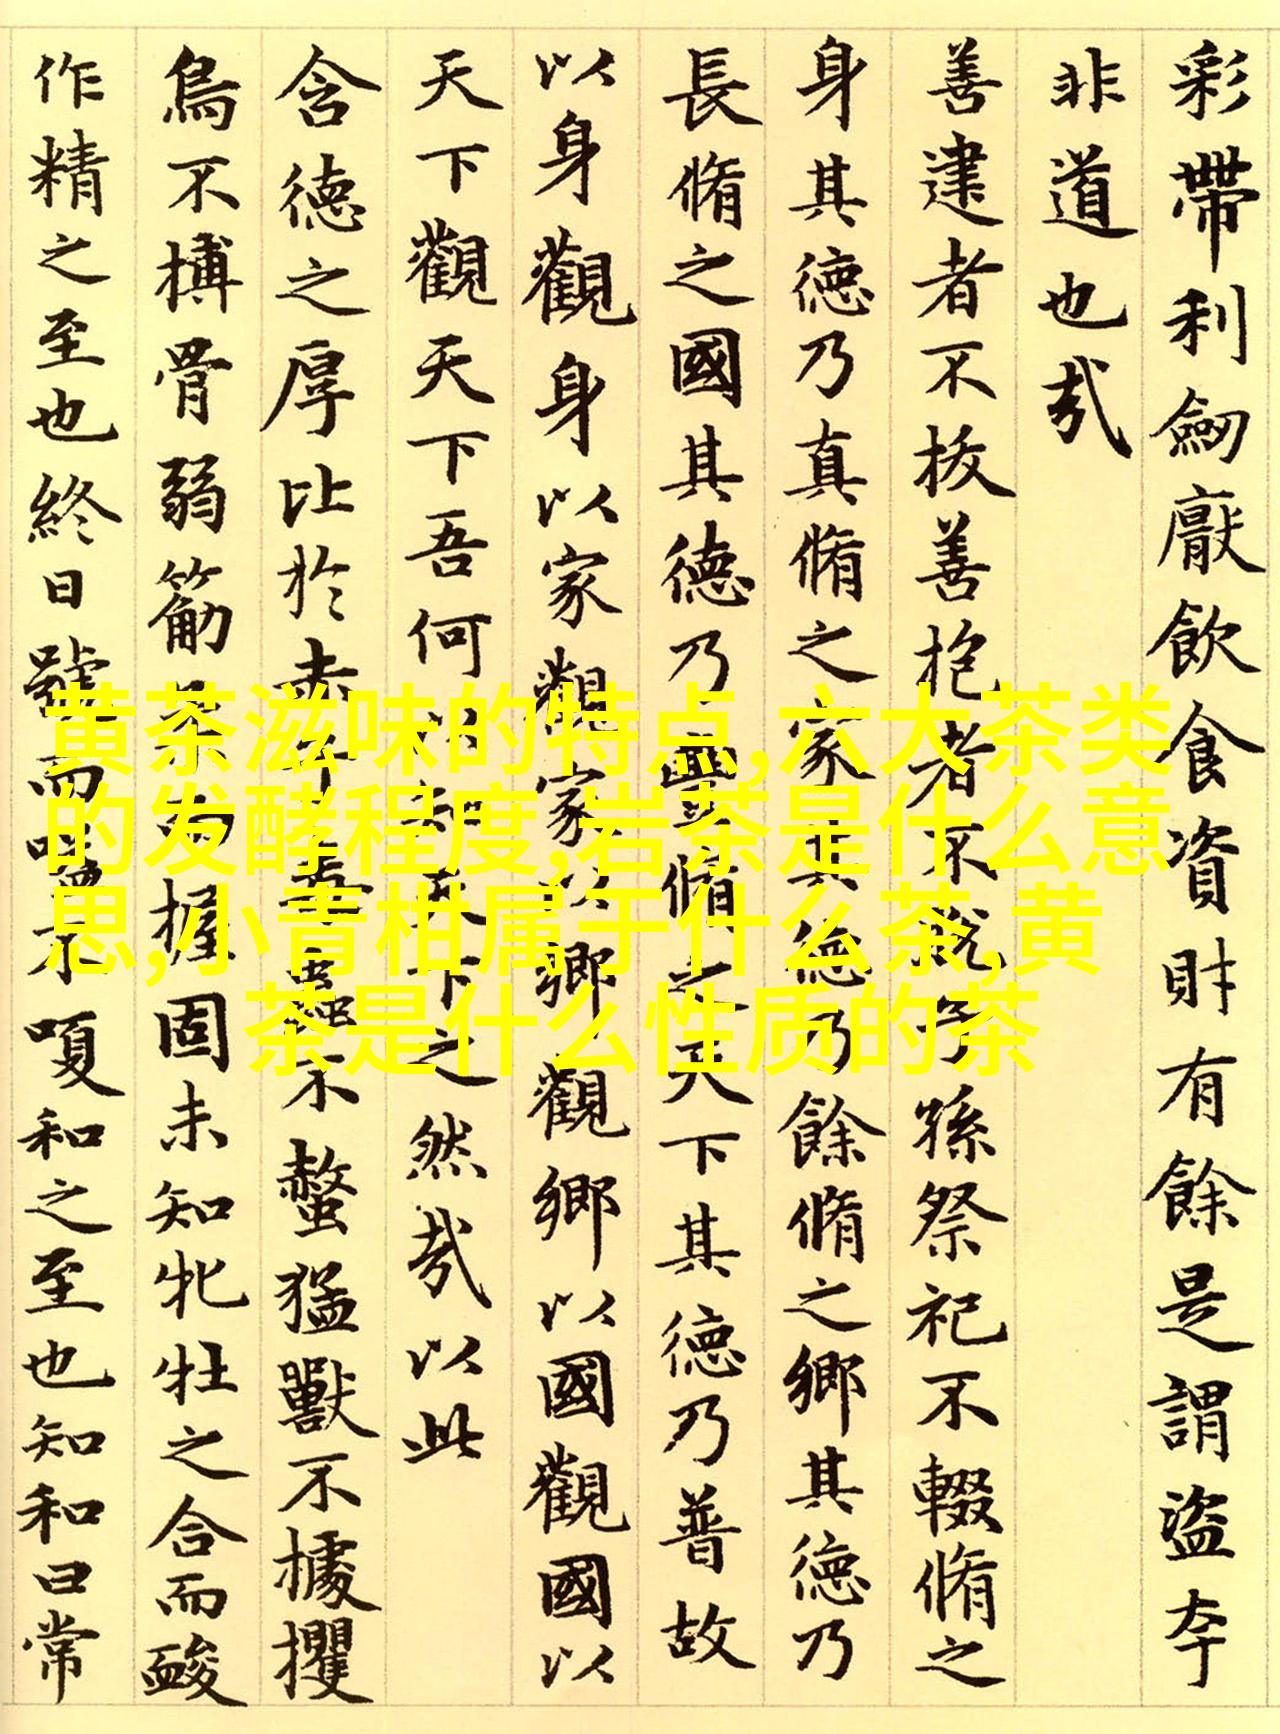 彩帶利劔厭飲食資財有餘是謂盜夸
非道也哉
善建者不拔善抱者不脫子孫祭祀不輟脩之
身其德乃真脩之家其德乃餘脩之鄉其德乃
長脩之國其德乃豐脩之天下其德乃普故
以身觀身以家觀家以鄉觀鄉以國觀國以
天下觀天下吾何以知天下之然哉以此
含德之厚比於赤子毒蟲不螫猛獸不據攫
鳥不搏骨弱筋柔而握固未知牝牡之合而䘒
作精之至也終日號而嗌不嗄和之至也知和曰常
黄茶滋味的特点,六大茶类
的发酵程度,岩茶是什么意
思,小青柑属于什么茶,黄
茶是什么性质的茶